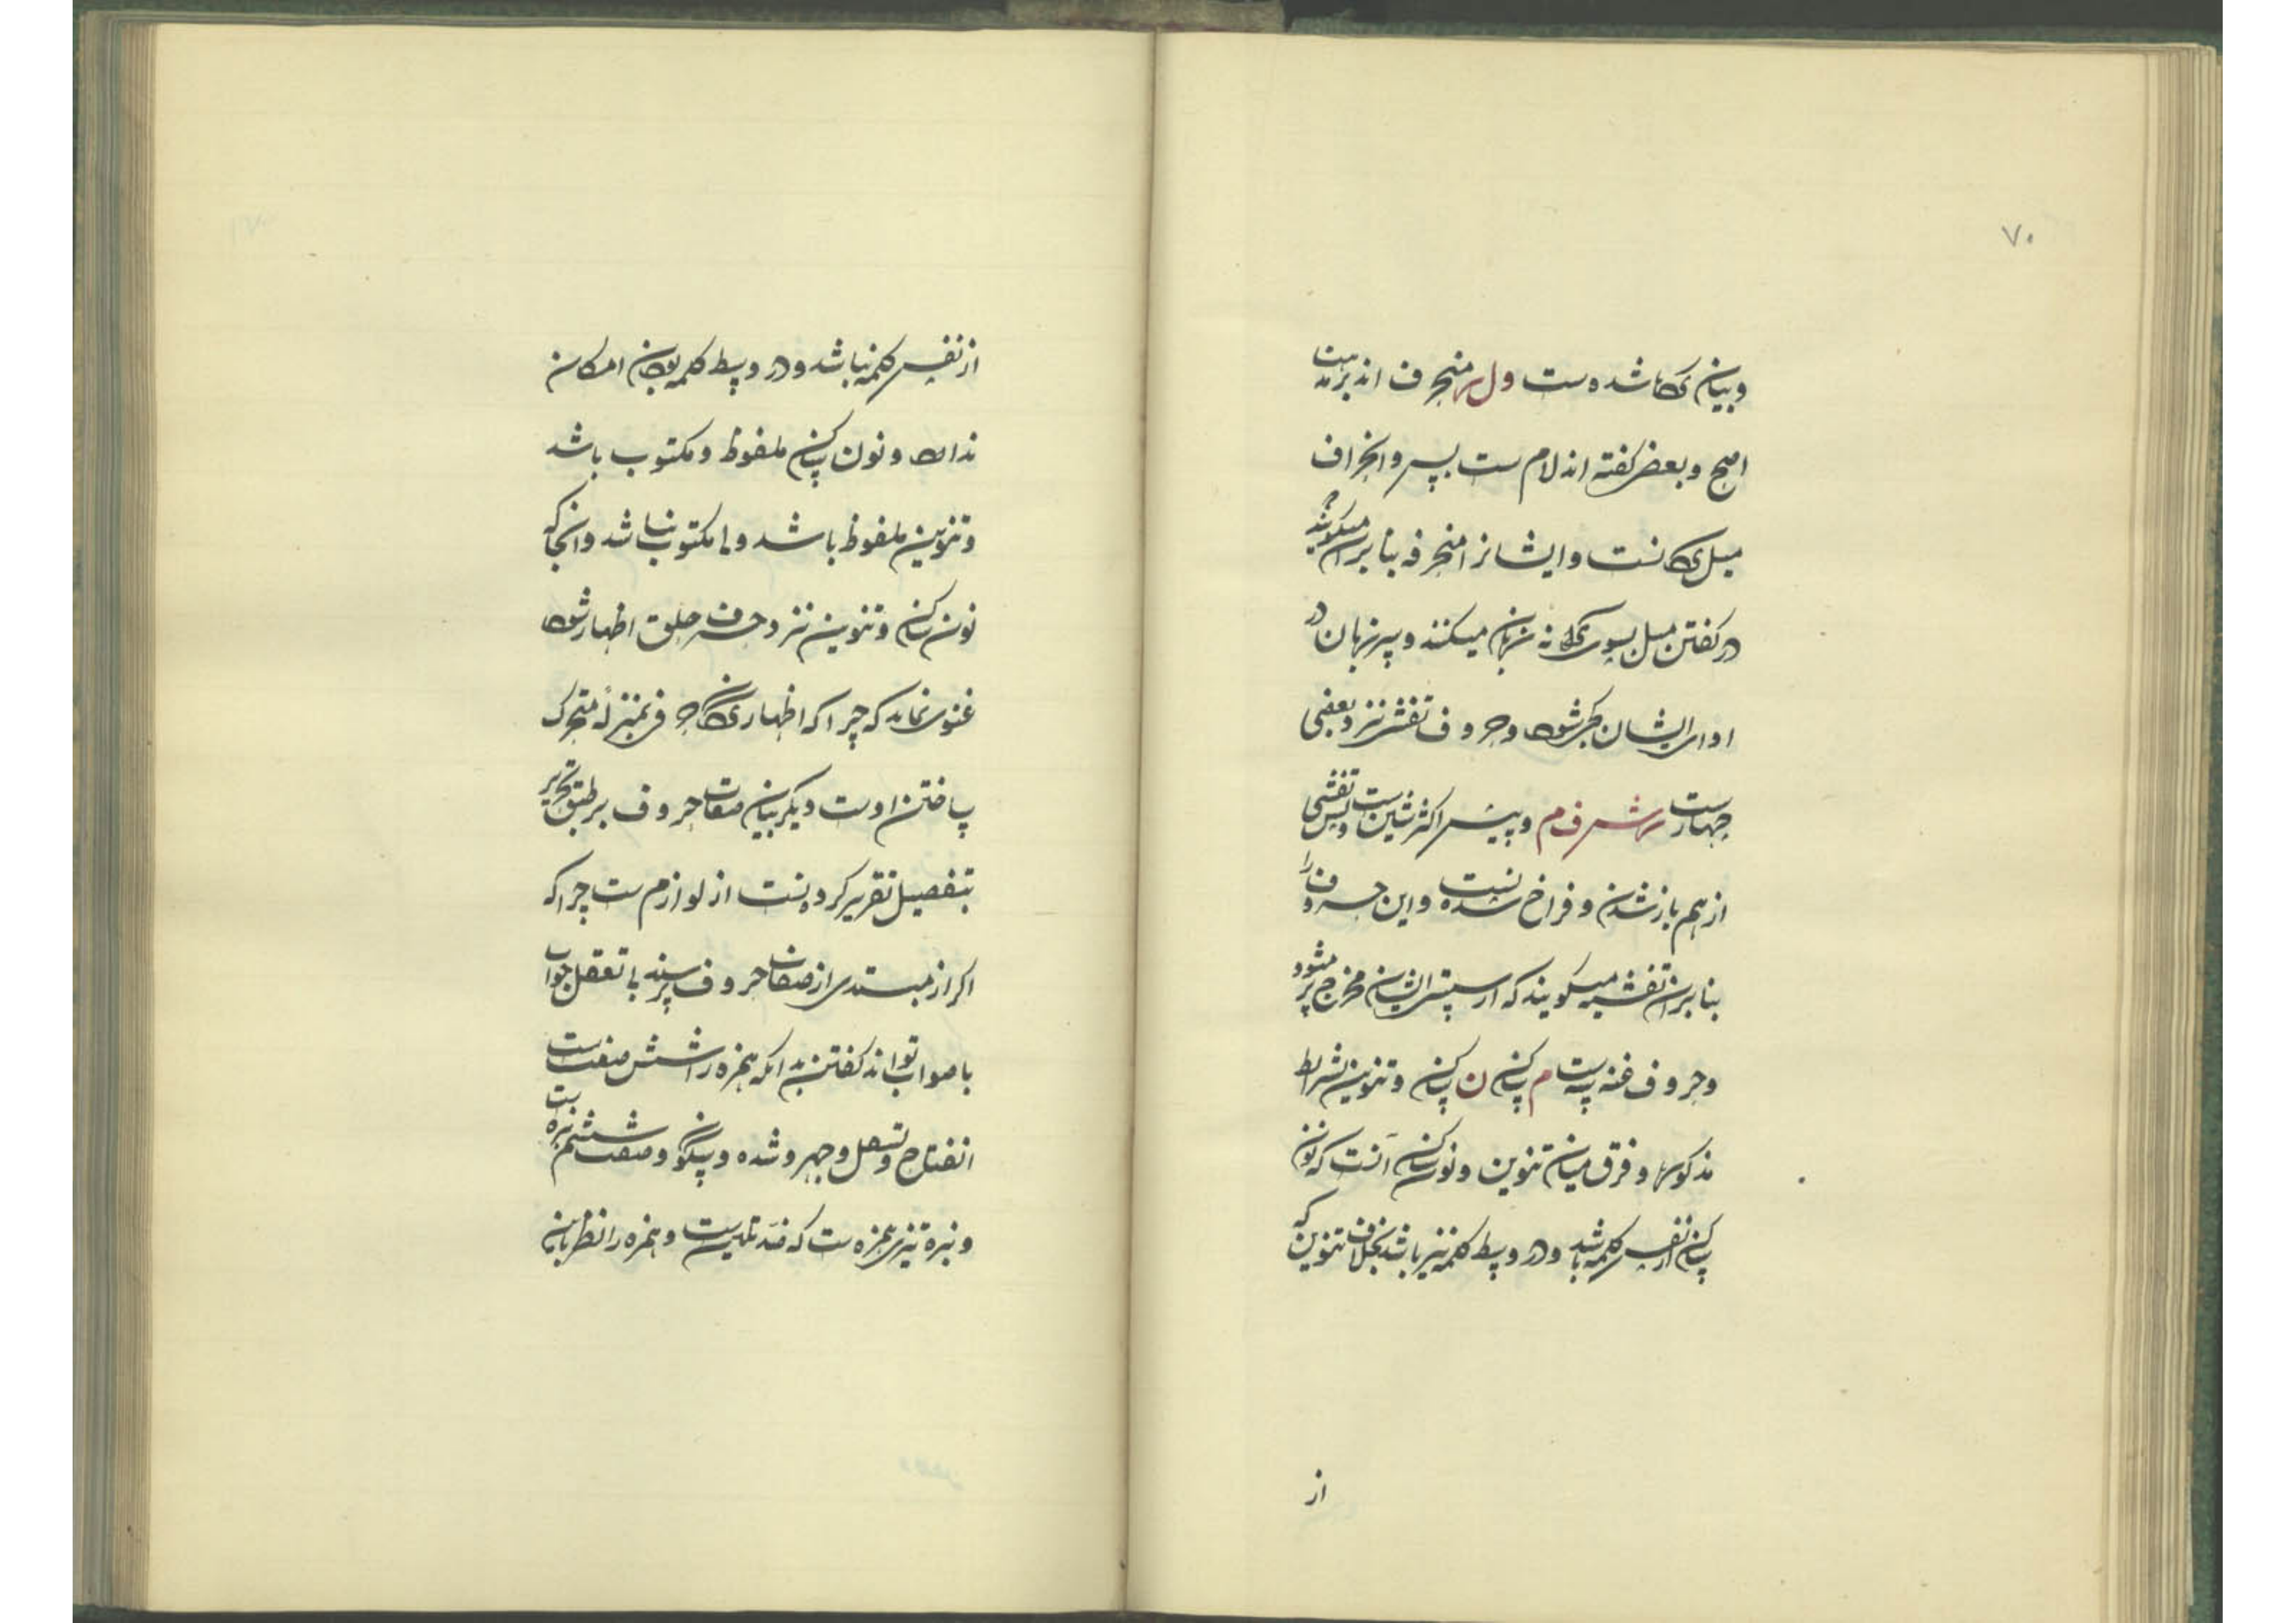 ۷۰
وبیان کرده شده ست و ل ر منحرف اند بر مذهب
اصح و بعضی گفته اند لام ست بس و انحراف
میل کردنست و ایشانرا منحرفه بنا بر آن میگویند که
در گفتن میل بسوی کرانه زبان میکنند و سر زبان در
ادای ایشان کج شود و حروف تفشی نزد بعضی
چهارست ر ش ف م و پیش اکثر شین ست و بس و تفشی
از هم باز شدن و فراخ شدنست و این حروف را
بنا بران تفشیه میگویند که از ایشان مخرج پر میشود
و حروف غنه سه ست م ساکن ن ساکن و تنوین بشرایط
مذکوره و فرق میان تنوین و نون ساکن آنست که نون
ساکن از نفس کلمه باشد و در وسط کلمه نیز باشد بخلاف تنوین که
از
از نفس کلمه نباشد و در وسط کلمه بودن امکان
ندارد و نون ساکن ملفوظ و مکتوب باشد
و تنوین ملفوظ باشد ولی مکتوب نباشد و انجا که
نون ساکن و تنوین نزد حروف حلق اظهار شود
غنوی نماند که چرا که اظهار حرفی بمنزله متحرک
ساختن اوست دیگر بیان صفات حروف بر طبق تحریر
بتفصیل تقریر کردنست از لوازم ست چرا که
اکر از مبتدی از صفات حروف پرسند بی تعقل جواب
با صواب تواند گفتن بدانکه همزه را شش صفت ست
انفتاح و تسفل و جهر و شده و سکون و صفت ششم نبره ست
و نبره تیزی همزه ست که ضد تلیین ست و همزه را نظر باین